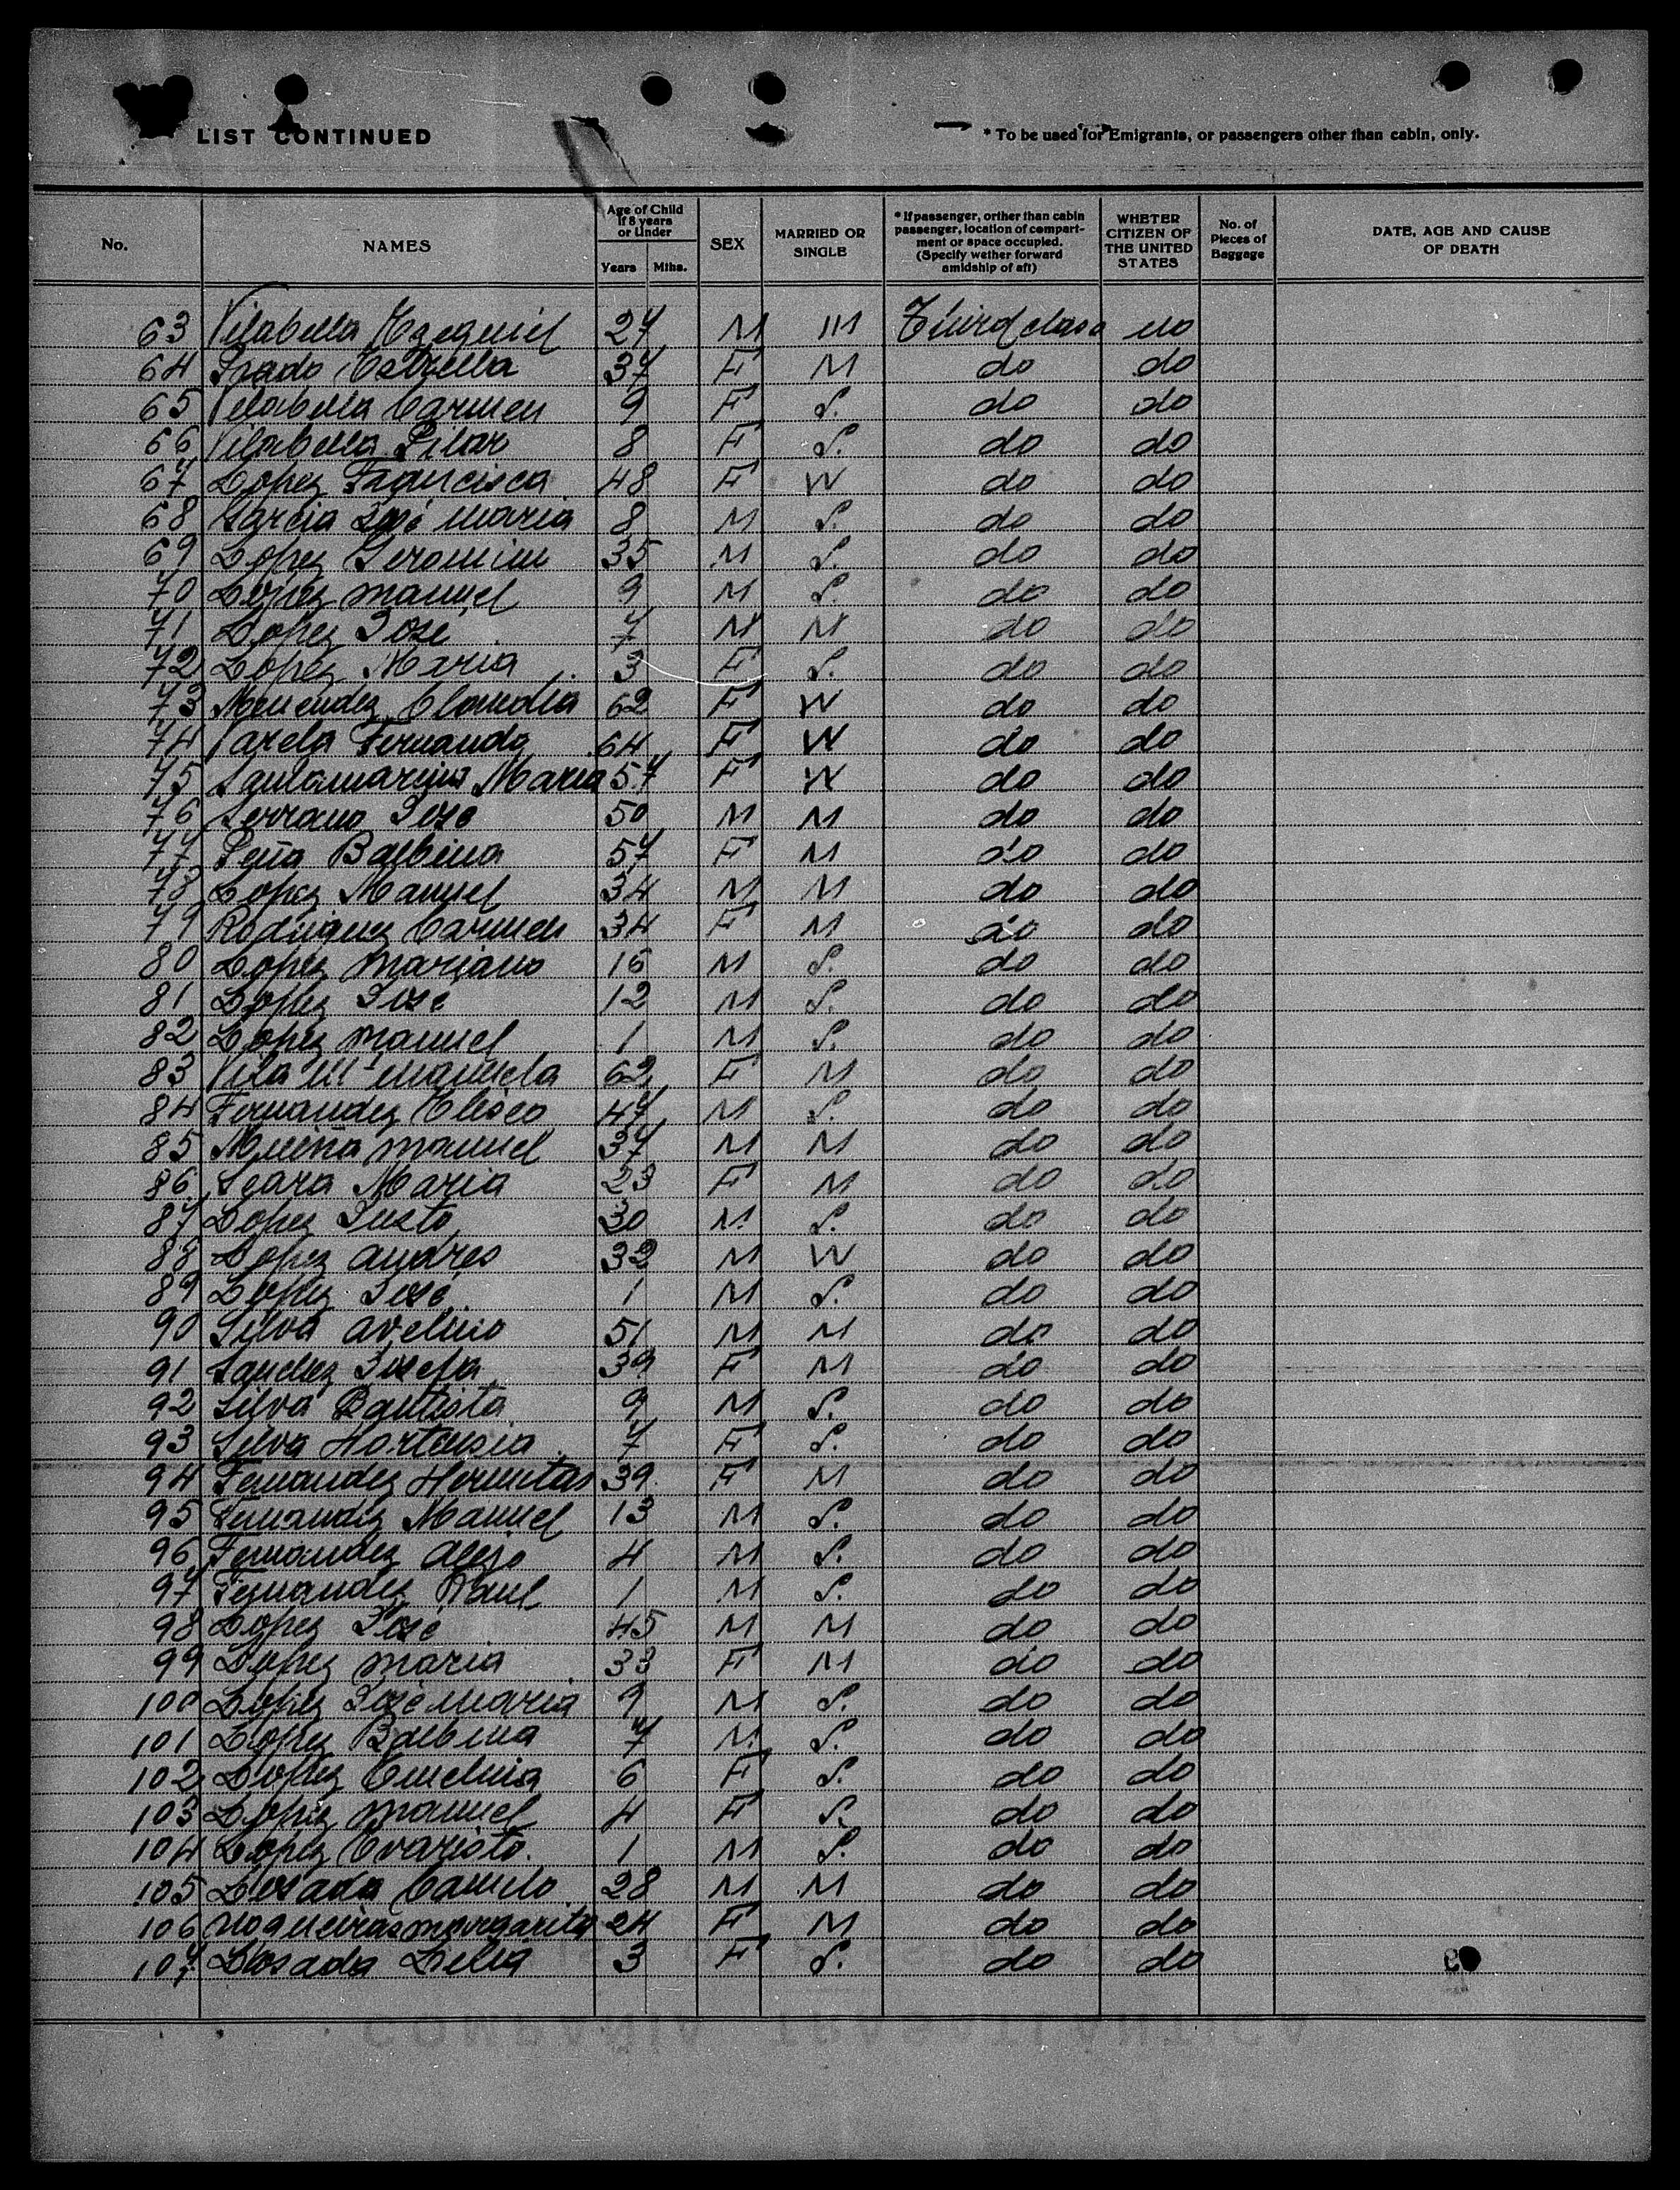 LIST CONTINUED
* To be used for Emigrants, or passengers other than cabin, only.
No. NAMES Age of Child if 8 years or Under Years Mths. SEX MARRIED OR SINGLE * If passenger, orther than cabin passenger, location of compartment or space occupied. (Specify wether forward amidship of aft) WHETER CITIZEN OF THE UNITED STATES No. of Pieces of Baggage DATE, AGE AND CAUSE OF DEATH
63 Vilabella Ezequiel 27 M M Third class no
64 Prado Estrella 37 F M do do
65 Vilabella Carmen 9 F S. do do
66 Vilabella Pilar 8 F S. do do
67 Lopez Francisca 48 F W do do
68 Garcia José Maria 8 M S. do do
69 Lopez 35 M S. do do
70 Lopez Manuel 9 M S. do do
71 Lopez José 7 M M do do
72 Lopez Maria 3 F S. do do
73 Menendez Claudia 62 F W do do
74 Varela Fernanda 64 F W do do
75 Maria 57 F W do do
76 Serrano José 50 M M do do
77 Peña Balbina 57 F M do do
78 Lopez Manuel 34 M M do do
79 Rodriguez Carmen 34 F M do do
80 Lopez Mariano 16 M S. do do
81 Lopez José 12 M S. do do
82 Lopez Manuel 1 M S. do do
83 Vila Mª Manuela 62 F M do do
84 Fernandez Eliseo 47 M S. do do
85 Manuel 37 M M do do
86 Seara Maria 23 F M do do
87 Lopez Justo 30 M S. do do
88 Lopez Andres 32 M W do do
89 Lopez José 1 M S. do do
90 Silva Avelino 51 M M do do
91 Sanchez Josefa 39 F M do do
92 Silva Bautista 9 M S. do do
93 Silva Hortensia 7 F S. do do
94 Fernandez Hermitas 39 F M do do
95 Fernandez Manuel 13 M S. do do
96 Fernandez Alejo 4 M S. do do
97 Fernandez Raul 1 M S. do do
98 Lopez José 45 M M do do
99 Lopez Maria 33 F M do do
100 Lopez José Maria 9 M S. do do
101 Lopez Balbina 7 M S. do do
102 Lopez Emelina 6 F S. do do
103 Lopez Manuel 4 F S. do do
104 Lopez Evaristo. 1 M S. do do
105 Losada Camilo 28 M M do do
106 Nogueiras Margarita 24 F M do do
107 Losada Delia 3 F S. do do